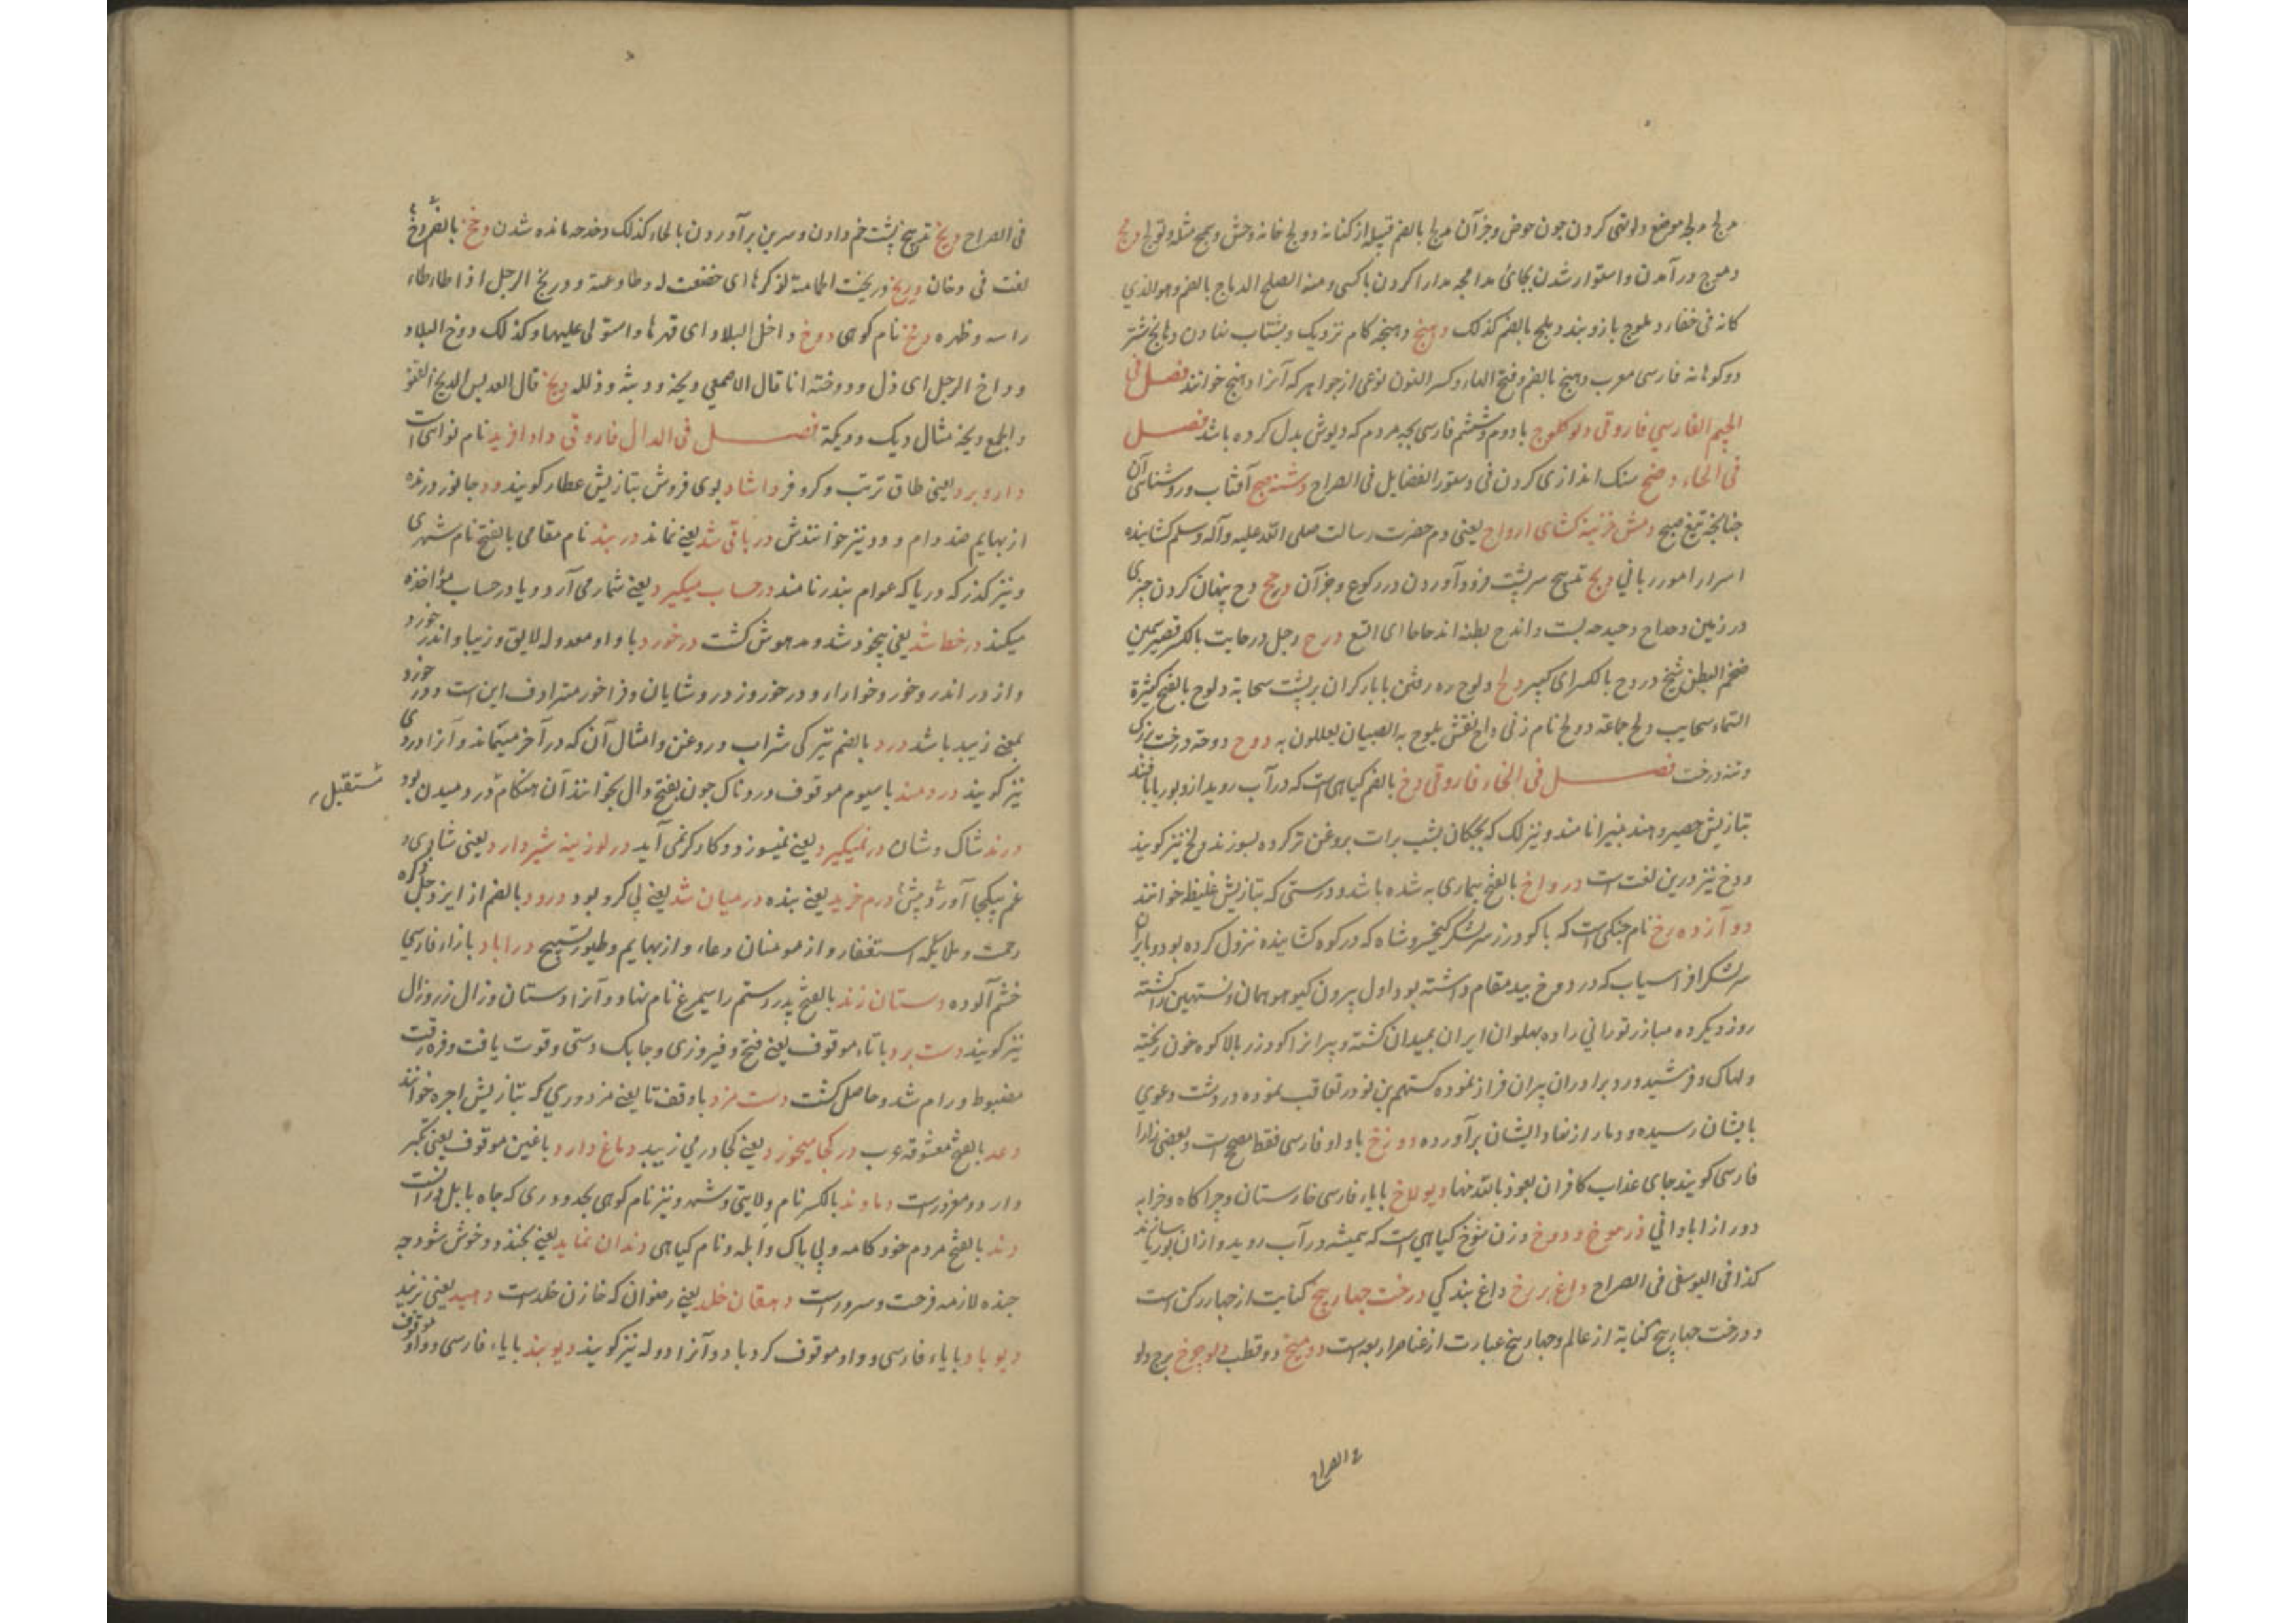 دمج در آمدن و استوار شدن بجائ مدامجه مدارا کردن با کسی و منه الصلح الدماج بالضم و هو الذي
کانه فی خفا و دملوج بازوبند دملج بالضم کذلک دهنج و هنجه کام نزدیک و بشتاب نهادن دهانج شتر
دو کوهانه فارسی معرب دهنج بالضم و فتح الهاء و کسر النون نوعی از جواهر که آنرا دهنج خوانند فصل فی
الجیم الفارسی فاروقی دلو کلوج با دوم و ششم فارسی بچه مردم که دیوش بدل کرده باشد فصل
فی الحاء دضح سنک اندازی کردن فی دستور الفضایل فی الصراح دشنه صبح آفتاب و روشنائی آن
چنانچه تیغ صبح دمش خزینه کشای ارواح یعنی دم حضرت رسالت صلی الله علیه وآله وسلم کشاینده
اسرار امور ربانی دبح تدبیح سر پشت فرود آوردن در رکوع و جز آن دحح دح پنهان کردن چیزی
در زمین
ضخم البطن شیخ دردح بالکسر ای کبیر دلح دلوح ره رفتن با بار کران بر پشت سحابة دلوح بالفتح کثیرة
الماء سحایب دلح جماعة دولح نام زنی داح نقش یلوح به الصبیان یعللون به دوح دوحة درخت بزرک
و تنه درخت فصل فی الخاء فاروقی دخ بالضم کیاهی است که در آب روید ازو بوریا بافند
بتازیش حصیر و هند پنیرا نامند و نیز لک که بچکان بشب برات بروغن تر کرده بسوزند و لخ نیز کویند
و دخ نیز درین لغت است درواخ بالفتح بیماری به شده باشد و درستی که بتازیش غلیظ خوانند
دوآزده رخ نام جنکی است که با کودرز سر لشکر کیخسرو شاه که در کوه کشابنده نزول کرده بود و با پیران
سر لشکر افراسیاب که در دو رخ بید مقام داشته بود اول بیرون کیو هومان و نستهین را کشته
روز دیکر ده مبارز تورانی را ده پهلوان ایران بمیدان کشته و پیرانرا کودرز بالا کوه خون ریخته
و لهاک و فرشیدورد برادران پیران فرار نموده کستهم بن نوذر تعاقب نموده در دشت دعوی
بایشان رسیده و دمار از نهاد ایشان برآورده دوزخ با واو فارسی فقط مصحح است و بعضی زا را
فارسی کویند جای عذاب کافران نعوذ بالله منها دیولاخ با یاء فارسی خارستان و چراکاه و خرابه
دور از ابادانی درموخ و دوخ وزن شوخ کیاهی است که همیشه در آب روید و ازان بوریا سازند
کذا فی الیوسفی فی الصراح داغ بر رخ داغ بندکی درخت چهار بیخ کنایت از چهار رکن است
و درخت چهار بیخ کنایة از عالم و چهار بیخ عبارت از عناصر اربعه است دو میخ دو قطب دلو چرخ برج دلو
فی الصراح
فی الصراح دبخ تدبیخ پشت خم دادن و سرین برآوردن بالحاء کذلک دخدخه مانده شدن دخخ بالضم دخ
لغت فی دخان دربخ دربخت الحمامة لذکرها ای خضعت له و طاوعته و دربخ الرجل اذا طاطاء
راسه و ظهره دمخ نام کوهی دوخ داخ البلاد ای قهرها و استولی علیها و کذلک دوخ البلاد
و داخ الرجل ای ذل و دوخته انا قال الاصمعی دیخه و دیثه و ذلله دیخ قال العدبس الدیخ القنو
و الجمع دیخة مثال دیک و دیکة فصل فی الدال فاروقی دادآفرید نام نوائی است
دار و برد یعنی طاق ترنب و کر و فر داشاد بوی فروش بتازیش عطار کویند دد جانور درنده
از بهایم ضد دام و دد نیز خوانندش در باقی شد یعنی نماند دربند نام مقامی بالفتح نام شهری
و نیز کذر که دریا که عوام بندر نامند در حساب میکیرد یعنی شمار می آرد و یا در حساب مؤاخذه
میکند در خط شد یعنی بیخود شد و مدهوش کشت درخورد با واو معدوله لایق و زیبا و اندرخورد
و از در اندرخور و خوارا و درخور و در و شایان و فراخور مترادف این است و درخورد
بمعنی زیبد باشد درد بالضم تیرکی شراب و روغن و امثال آن که در آخر میماند و آنرا دردی
نیز کویند دردمند با سیوم موقوف دردناک چون بفتح دال بخوانند آن هنکام درودیدن بود
مستقبل
درند شاک و شان در نمیکیرد یعنی نمیسوزد و کارکر نمی آید در لوزینه شیر دارد یعنی شادی و
غم بیکجا آورد درم خرید یعنی بنده در میان شد یعنی پی کرو بود درود بالضم از ایزد جل ذکره
رحمت و ملایکه استغفار و از مومنان دعا و از بهایم و طیور تسبیح دراباد با زاء فارسی
خشم آلوده دستان زند بالفتح پدر رستم را سیمرغ نام نهاد و آنرا دستان و زال و زال زر
نیز کویند دست برد با تاء موقوف یعنی فتح و فیروزی و چابک دستی و قوت یافت
مضبوط و رام شد و حاصل کشت دست مزد با وقف تا یعنی مزدوری که بتازیش اجره خوانند
دعد بالفتح معشوقه عرب در کجا میخورد یعنی کجا در می زیبد دماغ دارد با غین موقوف یعنی تکبر
دارد و مغرور است دماوند بالکسر نام ولایتی و شهر و نیز نام کوهی بحدودری که چاه بابل در آنست
دند بالفتح مردم خود کامه و بی باک و ابله و نام کیاهی دندان نماید یعنی بخندد و خوش شود چه
خنده لازمه فرحت و سرور است دهقان خلد یعنی رضوان که خازن خلد است دهید یعنی بزنید
دیوباد با یاء فارسی و واو موقوف کردباد و آنرا دوله نیز کویند دیوبند با یاء فارسی و واو موقوف